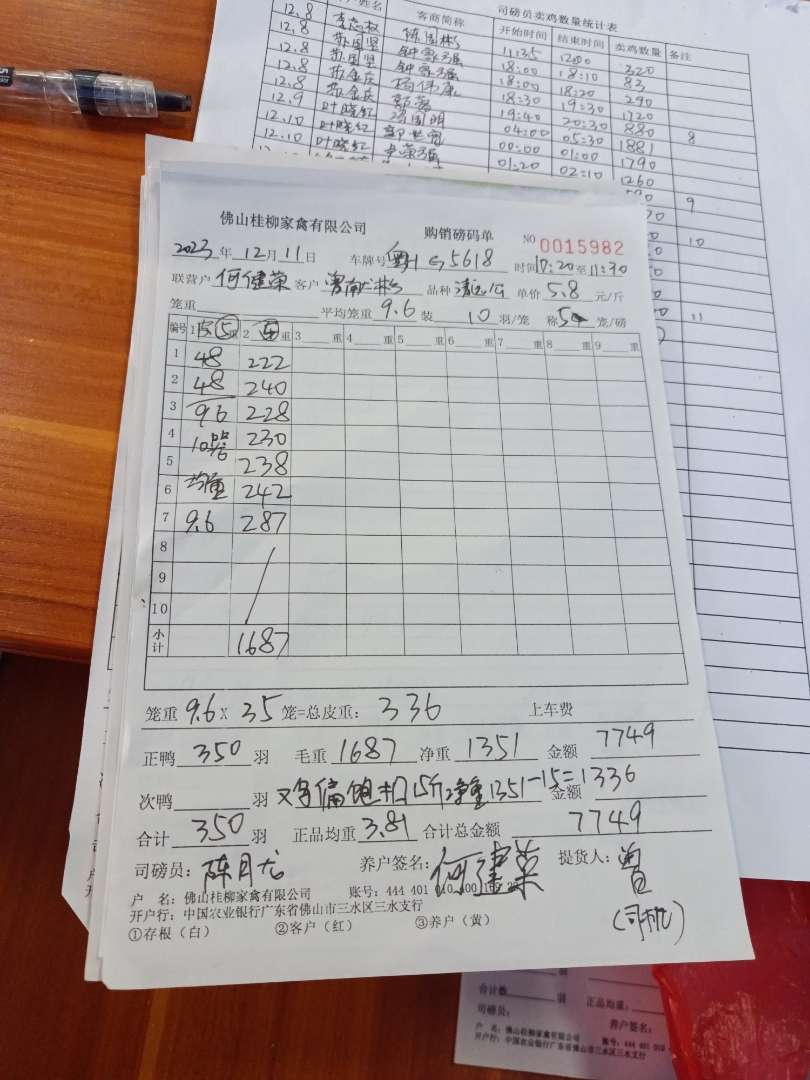 司磅员卖鸡数量统计表
客商简称 开始时间 结束时间 卖鸡数量 备注
12.8 李志权 11:35 1200 320
12.8 苏国坚 钟家强 18:00 18:10 83
12.8 苏国坚 钟家强 18:00 18:20 290
12.8 苏金庆 杨伟康 18:30 19:30 1720
12.8 苏金庆 19:40 20:30 880
12.9 叶晓红 04:00 05:30 1881 8
12.10 叶晓红 00:00 01:00 1790
12.10 叶晓红 01:20 02:10 1260
9
10
11
佛山桂柳家禽有限公司 购销磅码单 NO 0015982
2023年12月11日 车牌号 粤H G5618 时间 至11:30
联营户 何健荣 客户 品种 清远公 单价 5.8 元/斤
笼重 平均笼重 9.6 装 10 羽/笼 称 5 笼/磅
编号 1 ⑤重 2 重 3 重 4 重 5 重 6 重 7 重 8 重 9 重
1 48 222
2 48 240
3 96 228
4 10只 230
5 238
6 均重 242
7 9.6 287
8
9
10
小计 1687
笼重 9.6 X 35 笼=总皮重: 336 上车费
正鸭 350 羽 毛重 1687 净重 1351 金额 7749
次鸭 羽 鸡偏饱扣15斤净重1351-15=1336 金额
合计 350 羽 正品均重 3.81 合计总金额 7749
司磅员: 陈月尤 养户签名: 何建荣 提货人: 曾
(司机)
户 名: 佛山桂柳家禽有限公司 账号: 444 401 010
开户行: 中国农业银行广东省佛山市三水区三水支行
①存根(白) ②客户(红) ③养户(黄)
合计数 羽 正品均重:
司磅员: 养户签名:
户 名: 佛山桂柳家禽有限公司 账号: 444 401 010
开户行: 中国农业银行广东省佛山市三水区三水支行